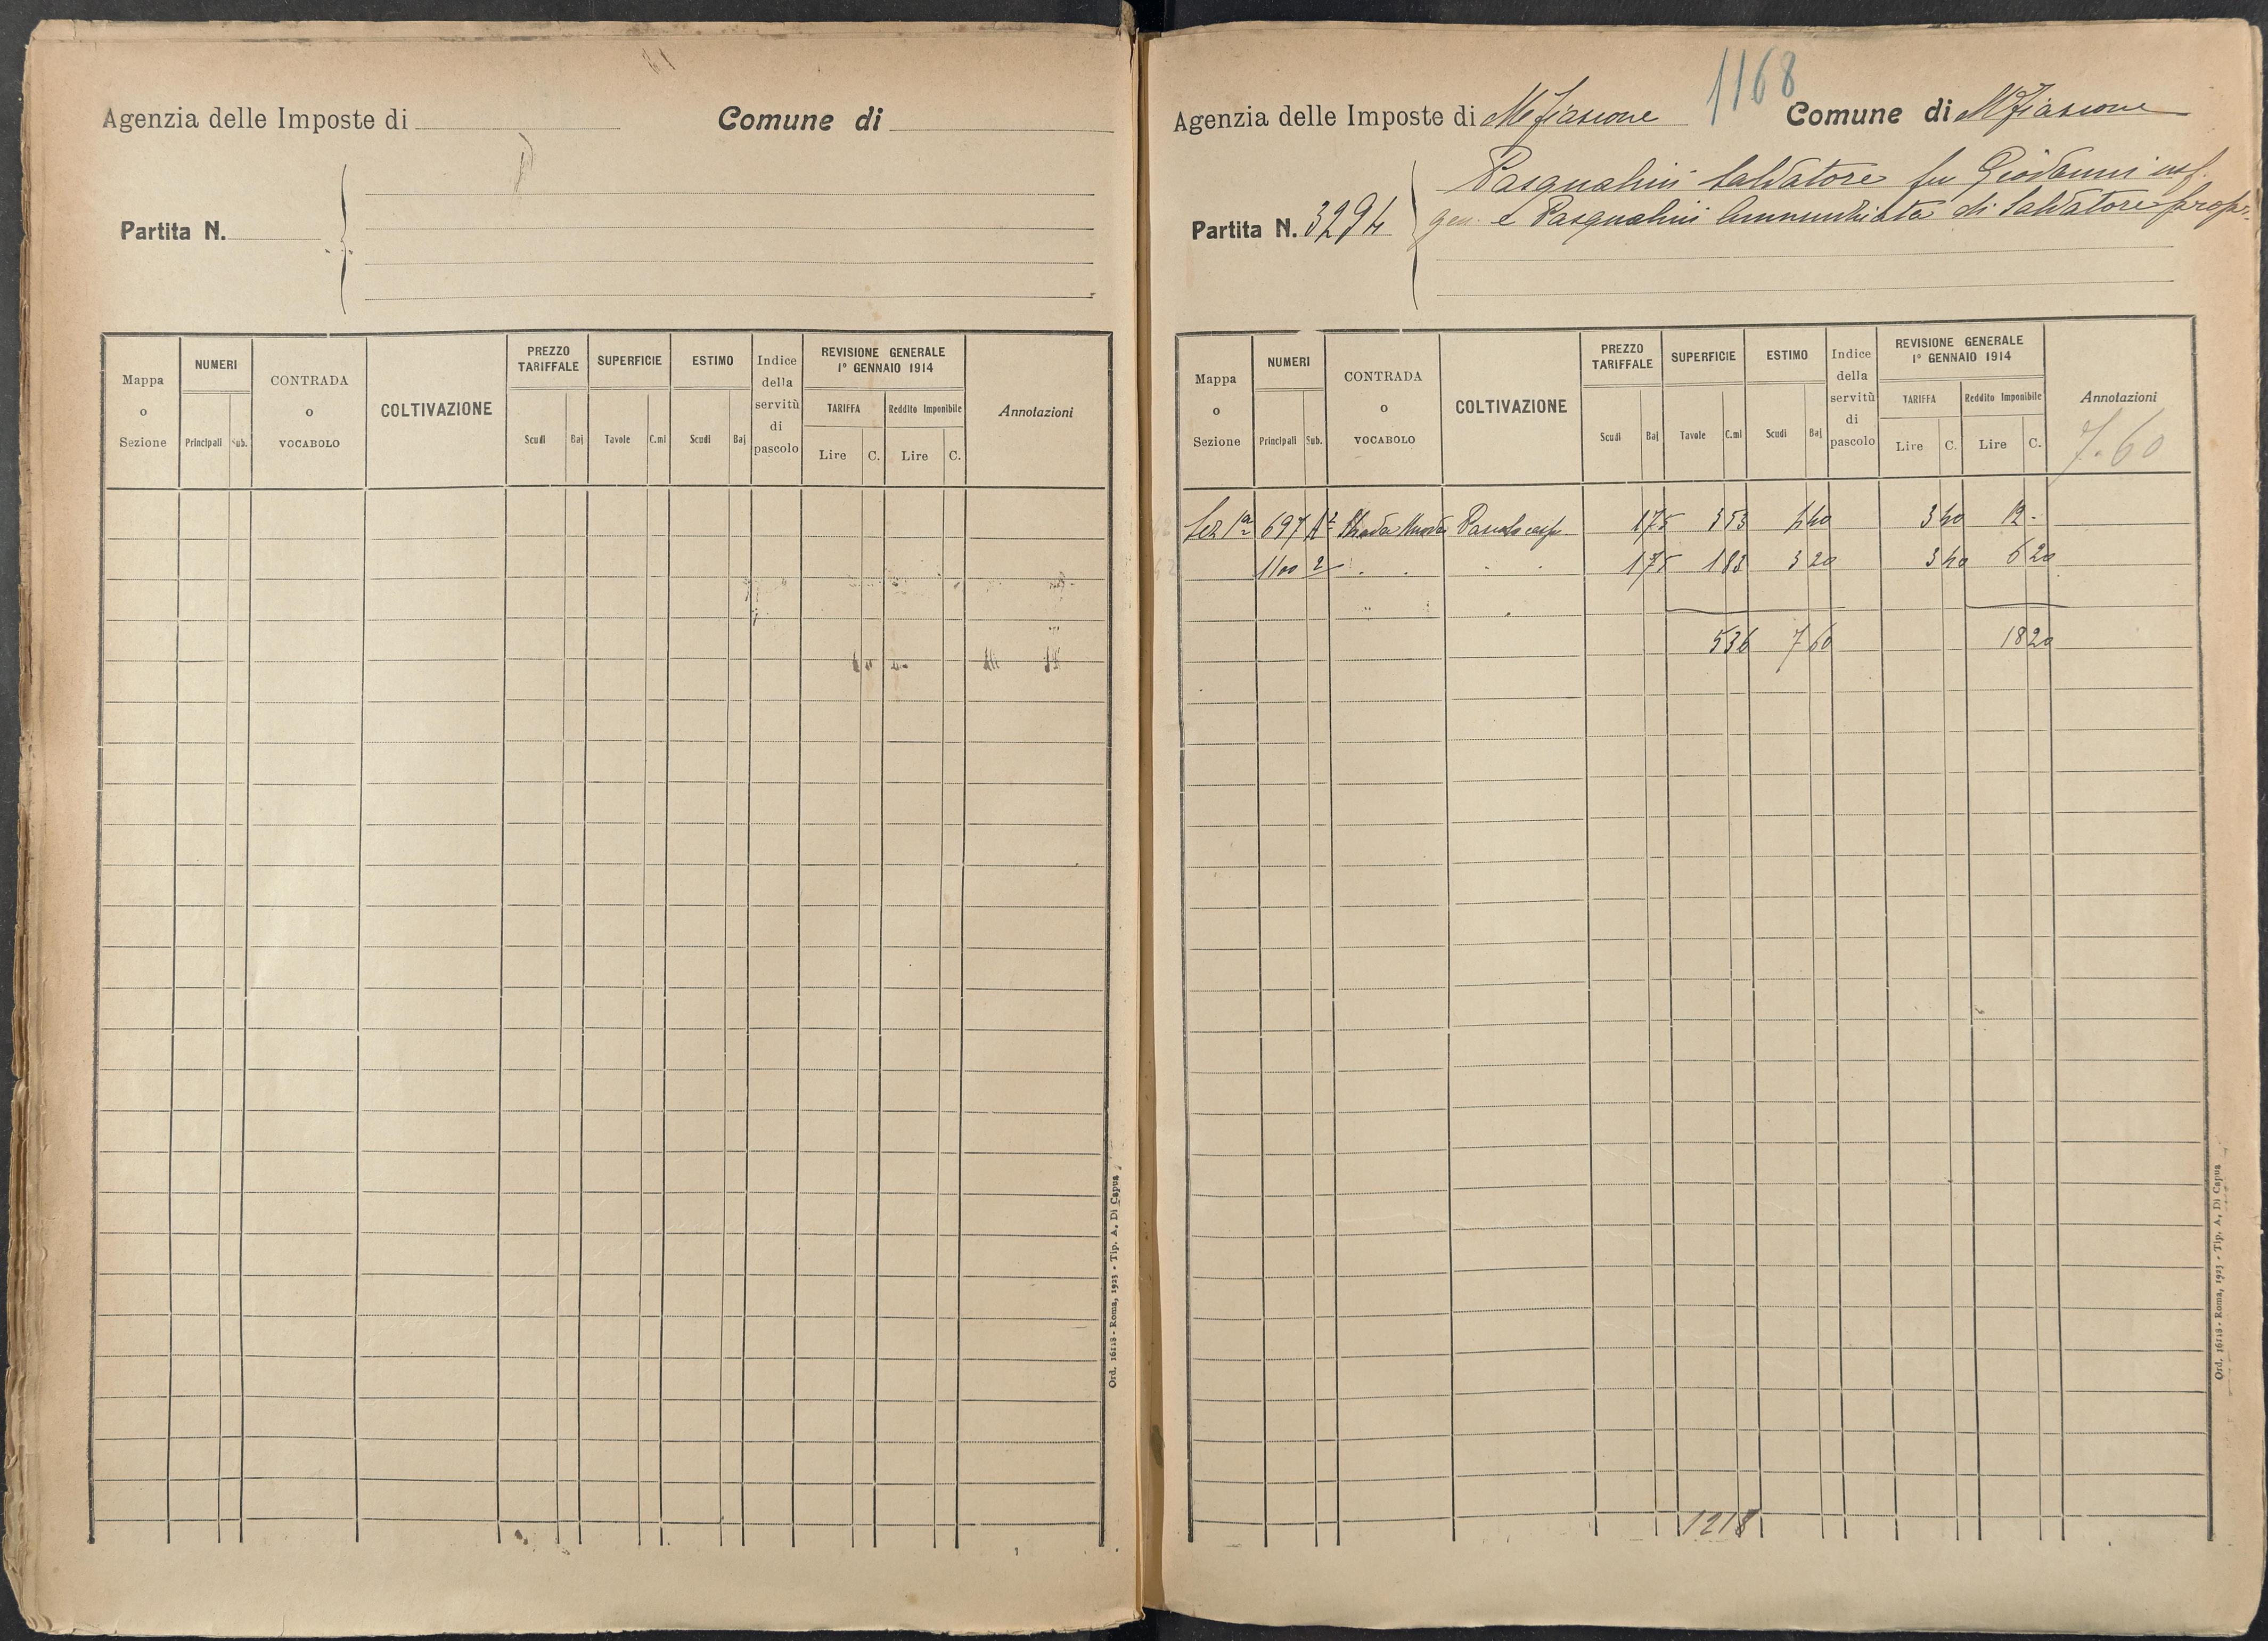 Agenzia delle Imposte di
Comune di
Partita N.
Mappa o Sezione
NUMERI
Principali
Sub.
CONTRADA o VOCABOLO
COLTIVAZIONE
PREZZO TARIFFALE
Scudi
Baj
SUPERFICIE
Tavole
C.mi
ESTIMO
Scudi
Baj
Indice della servitù di pascolo
REVISIONE GENERALE 1° GENNAIO 1914
TARIFFA
Lire
C.
Reddito Imponibile
Lire
C.
Annotazioni
Ord. 16118 - Roma, 1923 - Tip. A. Di Capua
1168
Agenzia delle Imposte di Mefiascone
Comune di Mfiascone
Partita N. 3294
Pasqualini Salvatore fu Giovanni usf.
gen. e Pasqualini Annunziata di Salvatore propr.
Mappa o Sezione
NUMERI
Principali
Sub.
CONTRADA o VOCABOLO
COLTIVAZIONE
PREZZO TARIFFALE
Scudi
Baj
SUPERFICIE
Tavole
C.mi
ESTIMO
Scudi
Baj
Indice della servitù di pascolo
REVISIONE GENERALE 1° GENNAIO 1914
TARIFFA
Lire
C.
Reddito Imponibile
Lire
C.
Annotazioni
7.60
Sez 1a 697 Strada Nuova 175 353 440 340 12 -
1100 2 175 183 320 340 620
536 760 1820
1218
Ord. 16118 - Roma, 1923 - Tip. A. Di Capua